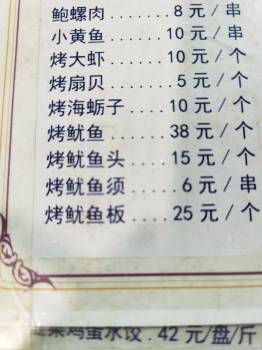 鲍螺肉.......8 元/串
小黄鱼......10 元/串
烤大虾......10 元/个
烤扇贝.......5 元/个
烤海蛎子....10 元/个
烤鱿鱼......38 元/个
烤鱿鱼头....15 元/个
烤鱿鱼须.....6 元/串
烤鱿鱼板....25 元/个
菜鸡蛋水饺.42 元/盘/斤